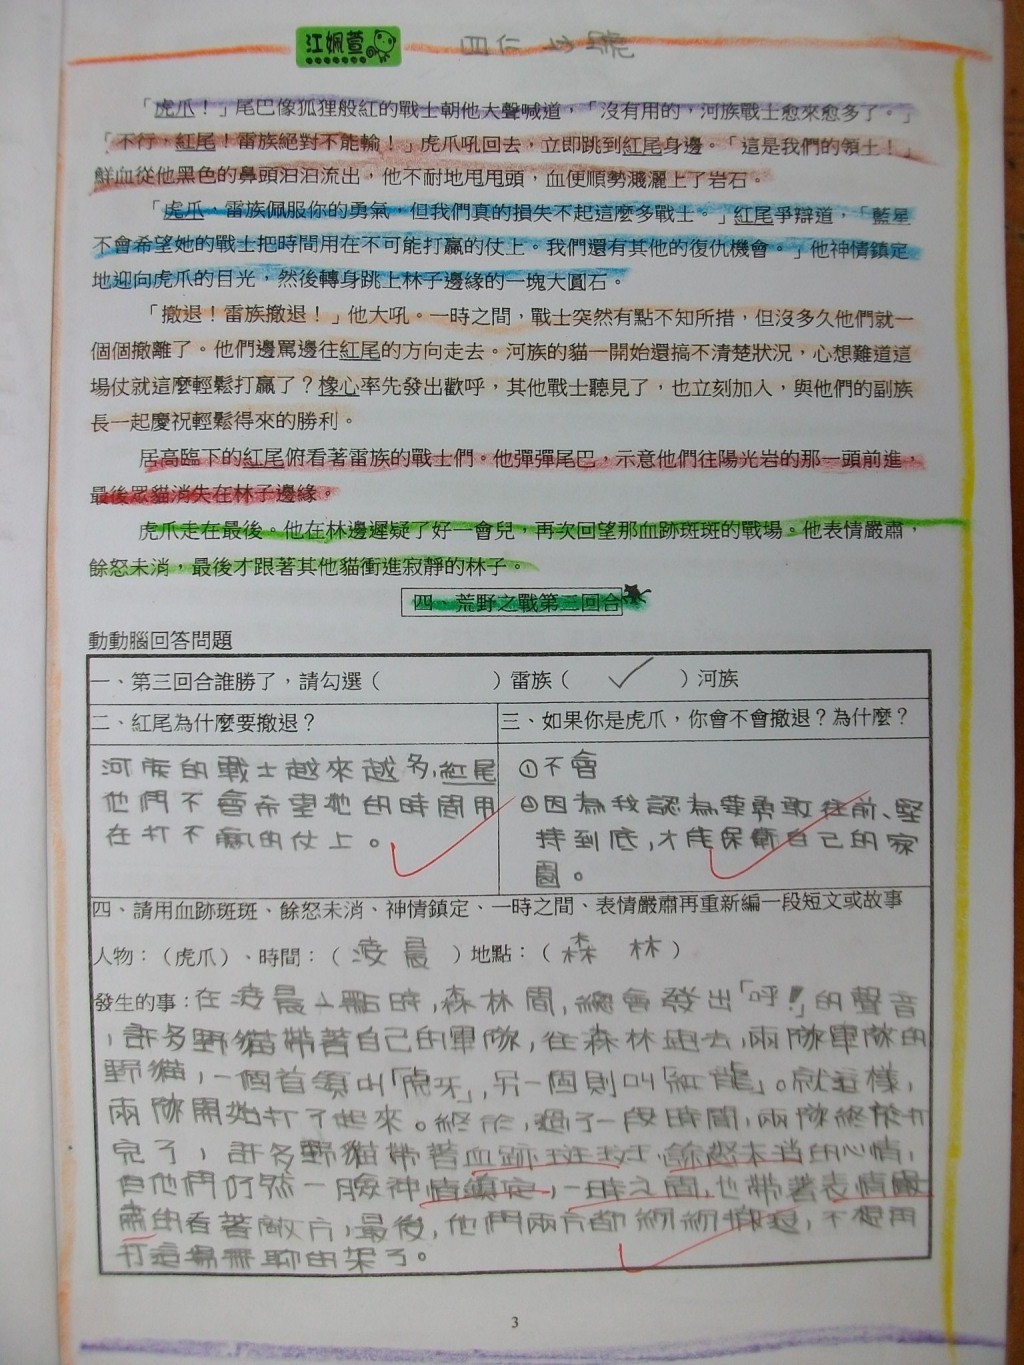 江姵萱 四仁 号號
「虎爪！」尾巴像狐狸般紅的戰士朝他大聲喊道，「沒有用的，河族戰士愈來愈多了。」
「不行，紅尾！雷族絕對不能輸！」虎爪吼回去，立即跳到紅尾身邊。「這是我們的領土！」
鮮血從他黑色的鼻頭汩汩流出，他不耐地甩甩頭，血便順勢濺灑上了岩石。
「虎爪，雷族佩服你的勇氣，但我們真的損失不起這麼多戰士。」紅尾爭辯道，「藍星
不會希望她的戰士把時間用在不可能打贏的仗上。我們還有其他的復仇機會。」他神情鎮定
地迎向虎爪的目光，然後轉身跳上林子邊緣的一塊大圓石。
「撤退！雷族撤退！」他大吼。一時之間，戰士突然有點不知所措，但沒多久他們就一
個個撤離了。他們邊罵邊往紅尾的方向走去。河族的貓一開始還搞不清楚狀況，心想難道這
場仗就這麼輕鬆打贏了？橡心率先發出歡呼，其他戰士聽見了，也立刻加入，與他們的副族
長一起慶祝輕鬆得來的勝利。
居高臨下的紅尾俯看著雷族的戰士們。他彈彈尾巴，示意他們往陽光岩的那一頭前進，
最後眾貓消失在林子邊緣。
虎爪走在最後。他在林邊遲疑了好一會兒，再次回望那血跡斑斑的戰場。他表情嚴肅，
餘怒未消，最後才跟著其他貓衝進寂靜的林子。
四、荒野之戰第三回合
動動腦回答問題
一、第三回合誰勝了，請勾選（ ）雷族（ ✓ ）河族
二、紅尾為什麼要撤退？
河族的戰士越來越多,紅尾
他們不會希望他的時間用
在打不贏的仗上。
三、如果你是虎爪，你會不會撤退？為什麼？
①不會
②因為我認為要勇敢往前、堅
持到底,才能保衛自己的家
園。
四、請用血跡斑斑、餘怒未消、神情鎮定、一時之間、表情嚴肅再重新編一段短文或故事
人物：（虎爪）、時間：（凌晨）地點：（森林）
發生的事：在凌晨 點時,森林間,總會發出「呼!」的聲音
,許多野貓帶著自己的軍隊,往森林跑去,兩隊軍隊的
野貓,一個首領叫「虎牙」,另一個則叫「紅龍」。就這樣,
兩隊開始打了起來。終於,過了一段時間,兩隊終於打
完了,許多野貓帶著血跡斑斑、餘怒未消的心情,
但他們仍然一臉神情鎮定,一時之間,也帶著表情嚴
肅的看著敵方,最後,他們兩方都紛紛撤退,不想再
打這場無聊的架了。
3